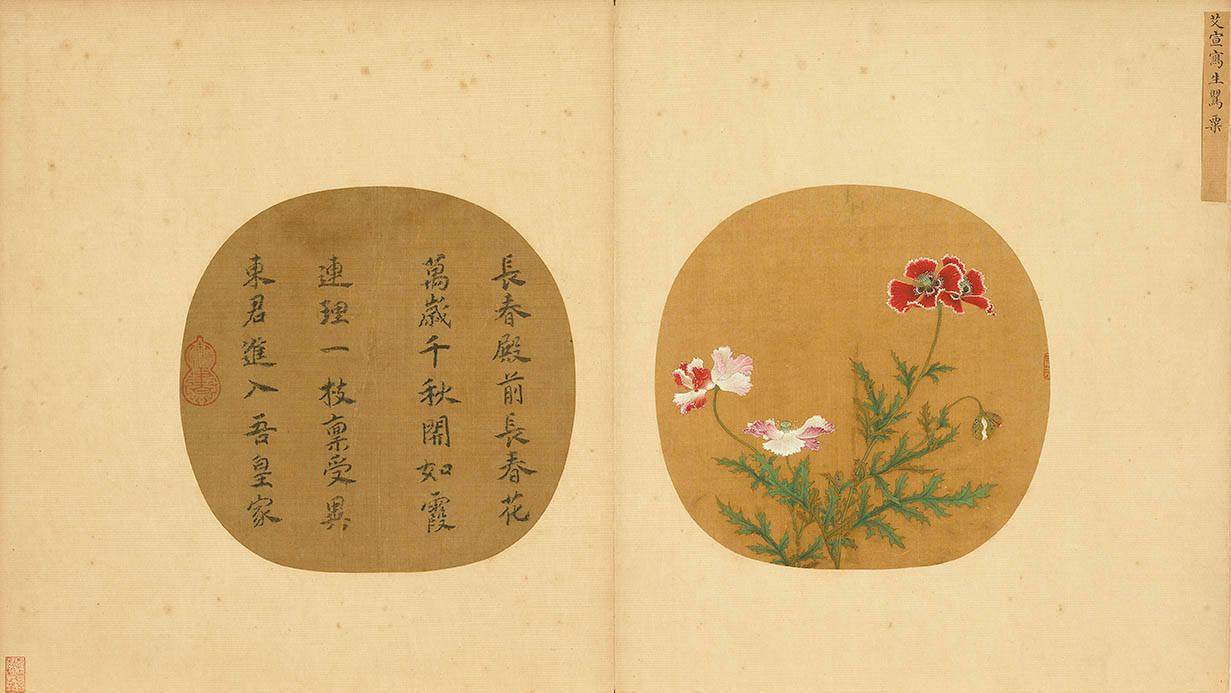 艾宣寫生罌粟
長春殿前長春花
萬歲千秋開如霞
連理一枝稟受異
東君進入吾皇家